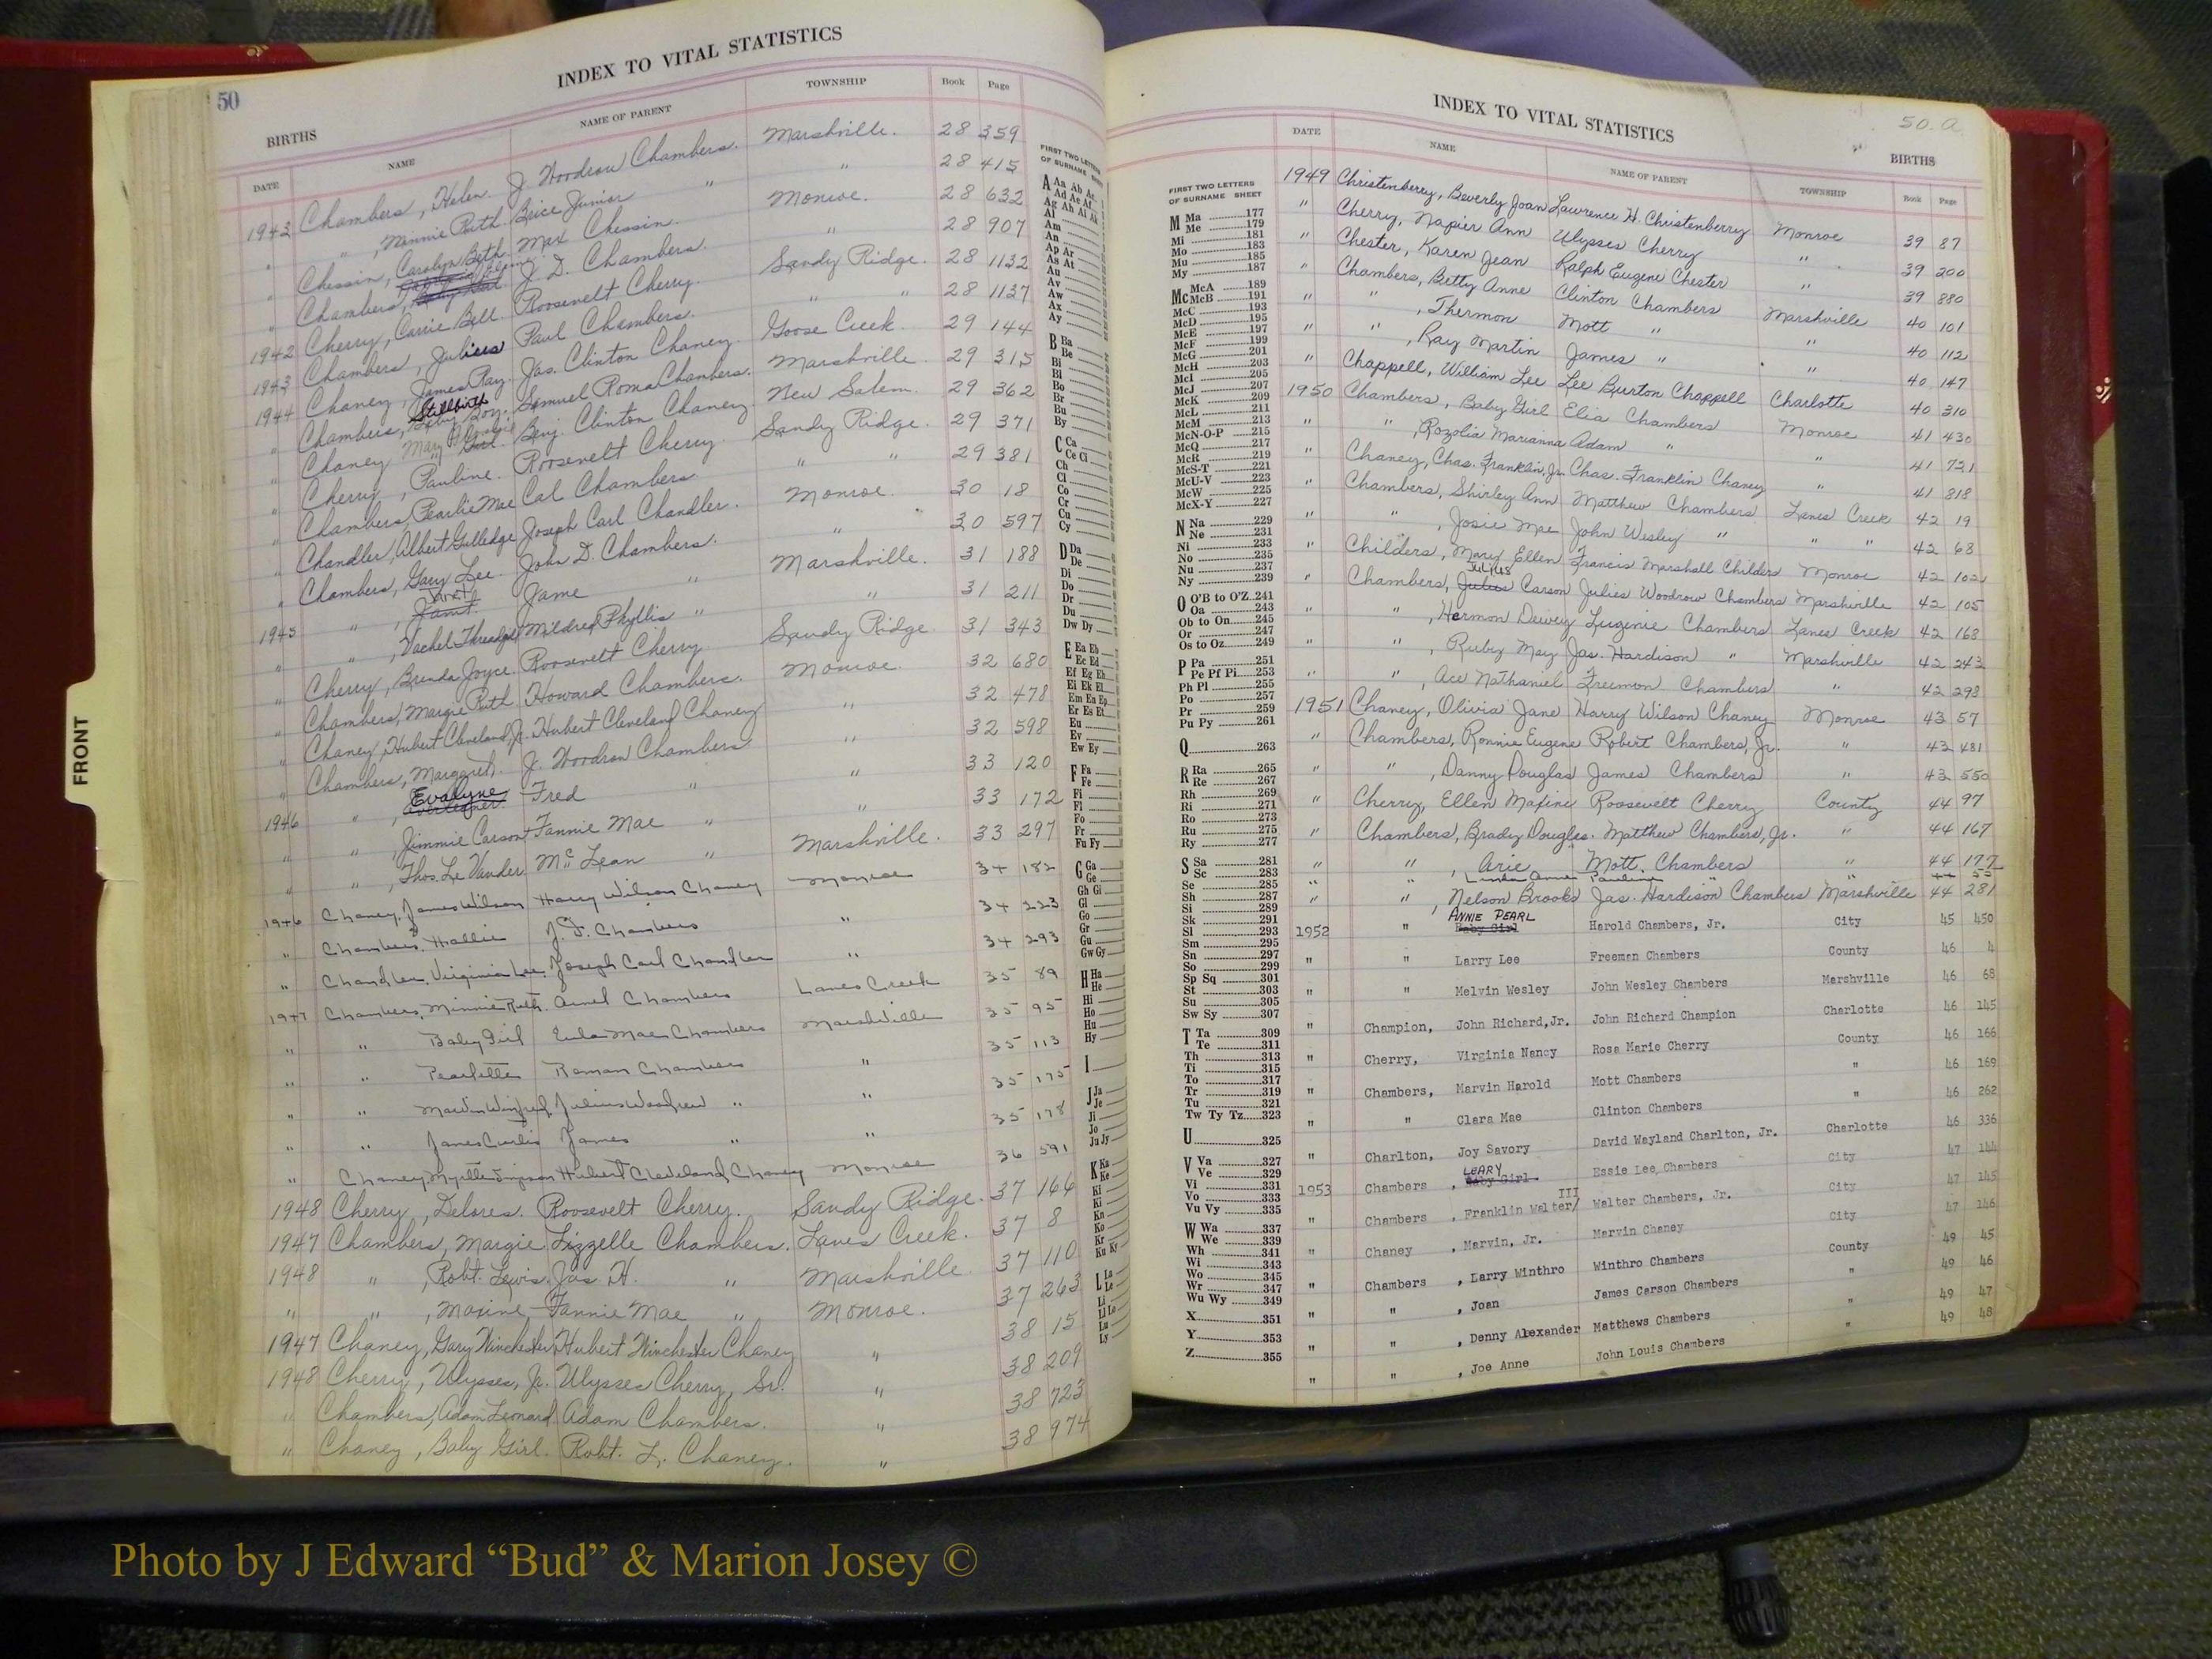 50
INDEX TO VITAL STATISTICS
BIRTHS
DATE NAME NAME OF PARENT TOWNSHIP Book Page
1943 Chambers, Helen J Woodrow Chambers. Marshville. 28 359
" " , Minnie Ruth. Brice Junior " " 28 415
" Chessin, Carolyn Beth. Max Chessin. Monroe. 28 632
" Chambers, J. D. Chambers. " 28 907
1942 Cherry, Carrie Bell Roosevelt Cherry. Sandy Ridge. 28 1132
1943 Chambers, Paul Chambers. " " 28 1137
1944 Chaney, James Ray. Jas. Clinton Chaney. Goose Creek. 29 144
" Chambers, Stillbirth Samuel Roma Chambers. Marshville. 29 315
" Chaney Mary Benj. Clinton Chaney New Salem. 29 362
" Cherry, Pauline. Roosevelt Cherry. Sandy Ridge. 29 371
" Chambers, Pearlie Mae Cal Chambers " " 29 381
" Chandler, Albert Gulledge Joseph Carl Chandler. Monroe. 30 18
" Chambers, Gary Lee John D. Chambers. " 30 597
1945 " , Jame " Marshville. 31 188
" " , Vachel Mildred Phyllis " " 31 211
" Cherry, Brenda Joyce. Roosevelt Cherry Sandy Ridge. 31 343
" Chambers, Margie Ruth Howard Chambers. Monroe. 32 680
" Chaney, Hubert Cleveland, Jr. Hubert Cleveland Chaney " 32 478
" Chambers, Margaret. J. Woodrow Chambers " 32 598
1946 " , Evalyne Fred " " 33 120
" " , Jimmie Carson Fannie Mae " " 33 172
" " , Thos. Le Vander McLean " Marshville. 33 297
1946 Chaney, James Wilson Harry Wilson Chaney Monroe 34 182
" Chambers, Hallie J. F. Chambers " 34 223
" Chandler, Virginia Lee Joseph Carl Chandler " 34 293
1947 Chambers, Minnie Ruth. Chambers Lanes Creek 35 89
" " Baby Girl Eula Mae Chambers Marshville 35 95
" " Pearlette Roman Chambers " 35 113
" " Julius Woodrow " " 35 175
" " James Curtis James " " 35 178
" Chaney, Hubert Cleveland Chaney Monroe 36 591
1948 Cherry, Delores. Roosevelt Cherry. Sandy Ridge. 37 166
1947 Chambers, Margie Lizzelle Chambers. Lanes Creek. 37 8
1948 " , Robt. Lewis. Jas. H. " Marshville 37 110
" " , Maxine Fannie Mae " Monroe. 37 263
1947 Chaney, Gary Winchester Hubert Winchester Chaney " 38 15
1948 Cherry, Ulysses, Jr. Ulysses Cherry, Sr. " 38 209
" Chambers, Adam Leonard Adam Chambers. " 38 723
" Chaney, Baby Girl. Robt. L. Chaney. " 38 974
FRONT
FIRST TWO LETTERS
OF SURNAME SHEET
A Aa Ab Ac
Ad Ae Af
Ag Ah Ai Ak
Al
Am
An
Ap Ar
As At
Au
Av
Aw
Ax
Ay
B Ba
Be
Bi
Bl
Bo
Br
Bu
By
C Ca
Ce Ci
Ch
Cl
Co
Cr
Cu
Cy
D Da
De
Di
Do
Dr
Du
Dw Dy
E Ea Eb
Ec Ed
Ef Eg Eh
Ei Ek El
Em En Ep
Er Es Et
Eu
Ev
Ew Ey
F Fa
Fe
Fi
Fl
Fo
Fr
Fu Fy
G Ga
Ge
Gh Gi
Gl
Go
Gr
Gu
Gw Gy
H Ha
He
Hi
Ho
Hu
Hy
I
J Ja
Je
Ji
Jo
Ju Jy
K Ka
Ke
Ki
Kn
Ko
Kr
Ku Ky
L La
Le
Li
Lo
Lu
Ly
50.a.
INDEX TO VITAL STATISTICS
BIRTHS
DATE NAME NAME OF PARENT TOWNSHIP Book Page
1949 Christenberry, Beverly Joan Lawrence H. Christenberry Monroe 39 87
" Cherry, Napier Ann Ulysses Cherry " 39 200
" Chester, Karen Jean Ralph Eugene Chester " 39 880
" Chambers, Betty Anne Clinton Chambers Marshville 40 101
" " , Thermon Mott " " 40 112
" " , Ray Martin James " " 40 147
" Chappell, William Lee Lee Burton Chappell Charlotte 40 310
1950 Chambers, Baby Girl Elia Chambers Monroe 41 430
" " , Rozolia Marianna Adam " " 41 721
" Chaney, Chas. Franklin, Jr. Chas. Franklin Chaney " 41 818
" Chambers, Shirley Ann Matthew Chambers Lanes Creek 42 19
" " , Josie Mae John Wesley " " " 42 68
" Childers, Mary Ellen Francis Marshall Childers Monroe 42 102
JULIUS
" Chambers, Julius Carson Julies Woodrow Chambers Marshville 42 105
" " , Hermon Dewey Lugenie Chambers Lanes Creek 42 168
" " , Ruby May Jas. Hardison " Marshville 42 243
" " , Ace Nathaniel Freemon Chambers " 42 298
1951 Chaney, Olivia Jane Harry Wilson Chaney Monroe 43 57
" Chambers, Ronnie Eugene Robert Chambers, Jr. " 43 481
" " , Danny Douglas James Chambers " 43 550
" Cherry, Ellen Maxine Roosevelt Cherry County 44 97
" Chambers, Brady Douglas. Matthew Chambers, Jr. " 44 167
" " , Arie Mott. Chambers " 44 177
" " Linda Anne Pauline " "
" " , Nelson Brooks Jas. Hardison Chambers Marshville 44 281
ANNIE PEARL
1952 " Baby Girl Harold Chambers, Jr. City 45 450
" " Larry Lee Freeman Chambers County 46 4
" " Melvin Wesley John Wesley Chambers Marshville 46 68
" Champion, John Richard,Jr. John Richard Champion Charlotte 46 145
" Cherry, Virginia Nancy Rosa Marie Cherry County 46 166
" Chambers, Marvin Harold Mott Chambers " 46 169
" " Clara Mae Clinton Chambers " 46 262
" Charlton, Joy Savory David Wayland Charlton, Jr. Charlotte 46 336
LEARY
1953 Chambers , Baby Girl Essie Lee Chambers City 47 144
" Chambers , Franklin Walter/ III Walter Chambers, Jr. City 47 145
" Chaney , Marvin, Jr. Marvin Chaney City 47 146
" Chambers , Larry Winthro Winthro Chambers County 49 45
" " , Joan James Carson Chambers " 49 46
" " , Denny Alexander Matthews Chambers " 49 47
" , Joe Anne John Louis Chambers " 49 48
FIRST TWO LETTERS
OF SURNAME SHEET
M Ma 177
Me 179
Mi 181
Mo 183
Mu 185
My 187
Mc McA 189
McB 191
McC 193
McD 195
McE 197
McF 199
McG 201
McH 203
McI 205
McJ 207
McK 209
McL 211
McM 213
McN-O-P 215
McQ 217
McR 219
McS-T 221
McU-V 223
McW 225
McX-Y 227
N Na 229
Ne 231
Ni 233
No 235
Nu 237
Ny 239
O O'B to O'Z 241
Oa 243
Ob to On 245
Or 247
Os to Oz 249
P Pa 251
Pe Pf Pi 253
Ph Pl 255
Po 257
Pr 259
Pu Py 261
Q 263
R Ra 265
Re 267
Rh 269
Ri 271
Ro 273
Ru 275
Ry 277
S Sa 281
Sc 283
Se 285
Sh 287
Si 289
Sk 291
Sl 293
Sm 295
Sn 297
So 299
Sp Sq 301
St 303
Su 305
Sw Sy 307
T Ta 309
Te 311
Th 313
Ti 315
To 317
Tr 319
Tu 321
Tw Ty Tz 323
U 325
V Va 327
Ve 329
Vi 331
Vo 333
Vu Vy 335
W Wa 337
We 339
Wh 341
Wi 343
Wo 345
Wr 347
Wu Wy 349
X 351
Y 353
Z 355
Photo by J Edward “Bud” & Marion Josey ©